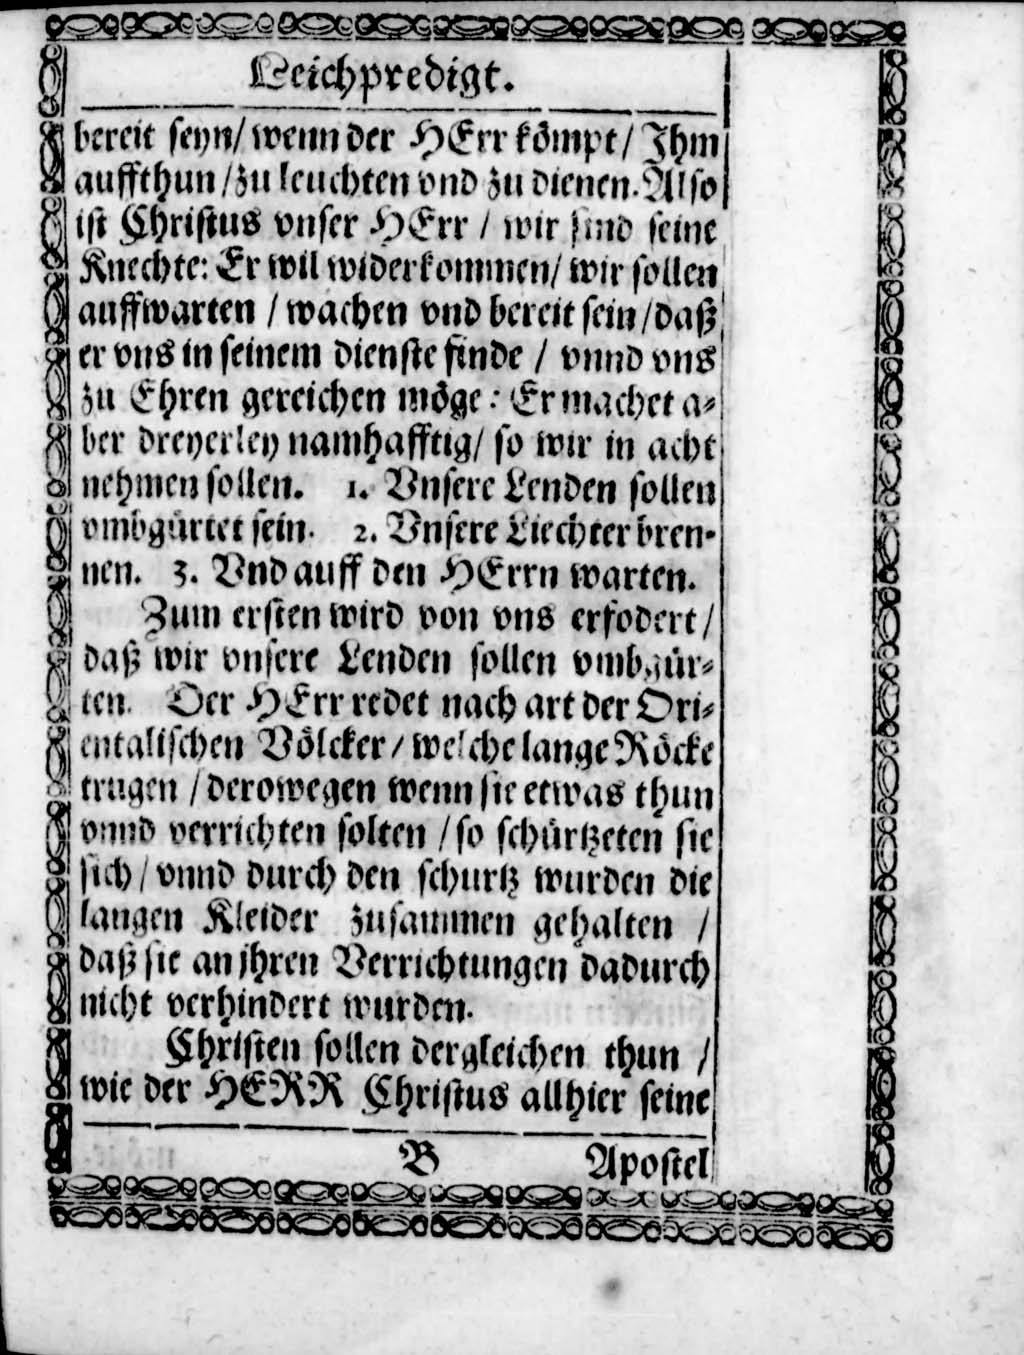 Leichpredigt.
bereit seyn/ wenn der HErr kömpt/ Jhm
auffthun/ zu leuchten vnd zu dienen. Also
ist Christus vnser HErr / wir sind seine
Knechte: Er wil widerkommen/ wir sollen
auffwarten / wachen vnd bereit sein/ daß
er vns in seinem dienste finde / vnnd vns
zu Ehren gereichen möge: Er machet a-
ber dreyerley namhafftig/ so wir in acht
nehmen sollen. 1. Vnsere Lenden sollen
vmbgürtet sein. 2. Vnsere Liechter bren-
nen. 3. Vnd auff den HErrn warten.
Zum ersten wird von vns erfodert/
daß wir vnsere Lenden sollen vmbgür-
ten. Der HErr redet nach art der Ori-
entalischen Völcker/ welche lange Röcke
trugen / derowegen wenn sie etwas thun
vnnd verrichten solten / so schürtzeten sie
sich/ vnnd durch den schurtz wurden die
langen Kleider zusammen gehalten /
daß sie an jhren Verrichtungen dadurch
nicht verhindert wurden.
Christen sollen dergleichen thun /
wie der HERR Christus allhier seine
B Apostel